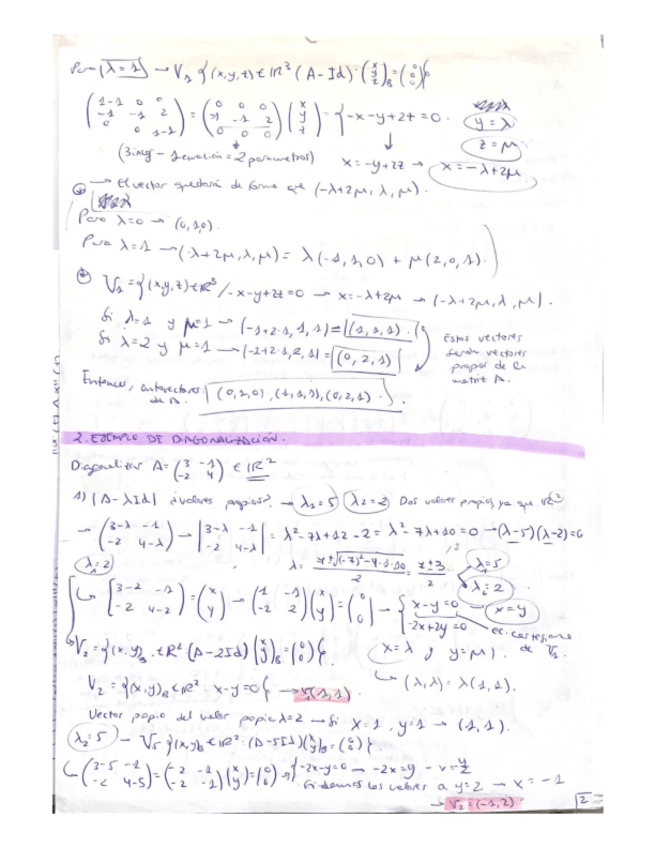 Para λ=1 → V₁ {(x,y,z) ∈ ℝ³ (A-Id)·(x y z)_B = (0 0 0)}
(1-1 0 0 / -1 -1 2 / 0 0 1-1) = (0 0 0 / -1 -1 2 / 0 0 0)(x y z) = {-x-y+2z=0. y=λ
z=μ
(3 incóg - 1 ecuación = 2 parámetros) x=-y+2z → x=-λ+2μ
→ El vector quedará de forma que (-λ+2μ, λ, μ).
Para λ=0 → (0,1,0).
Para λ=1 → (-λ+2μ, λ, μ) = λ(-1,1,0) + μ(2,0,1).
V₁={(x,y,z)∈ℝ³/-x-y+2z=0 → x=-λ+2μ → (-λ+2μ, λ, μ).
Si λ=1 y μ=1 → (-1+2·1, 1, 1) = (1,1,1).
Si λ=2 y μ=1 → (-2+2·1, 2, 1) = (0,2,1)
Estos vectores
serán vectores
propios de la
matriz A.
Entonces, autovectores de A. (0,1,0), (1,1,1), (0,2,1).
2. EJEMPLO DE DIAGONALIZACIÓN.
Diagonalizar A=(3 -1 / -2 4) ∈ ℝ²
1) |A-λId| ¿valores propios? → λ₁=5 λ₂=2 Dos valores propios ya que ℝ²
→ (3-λ -1 / -2 4-λ) → |3-λ -1 / -2 4-λ| = λ²-7λ+12-2 = λ²-7λ+10=0 → (λ-5)(λ-2)=0
λ=2 λ = 7±√(-7)²-4·1·10 / 2 = 7±3 / 2 λ=5
λ=2
(3-2 -1 / -2 4-2) = (x y) → (1 -1 / -2 2)(x y) = (0 0) → {x-y=0 x=y
-2x+2y=0 ec. cartesiana de V₂.
V₂={(x,y)_B ∈ ℝ² (A-2Id)(x y)_B = (0 0)}. x=λ y y=μ).
V₂={(x,y)_B ∈ ℝ² : x-y=0} → V(1,1). (λ,λ)=λ(1,1).
Vector propio del valor propio λ=2 → Si x=1, y=1 → (1,1).
λ₂=5 → V₅ {(x,y)_B ∈ ℝ² : (A-5Id)(x y)_B = (0 0)}.
(3-5 -1 / -2 4-5) = (-2 -1 / -2 -1)(x y) = (0 0) → {-2x-y=0 → -2x=y
Si damos los valores a y=2 → x=-1
→ V₂=(-1,2)
2